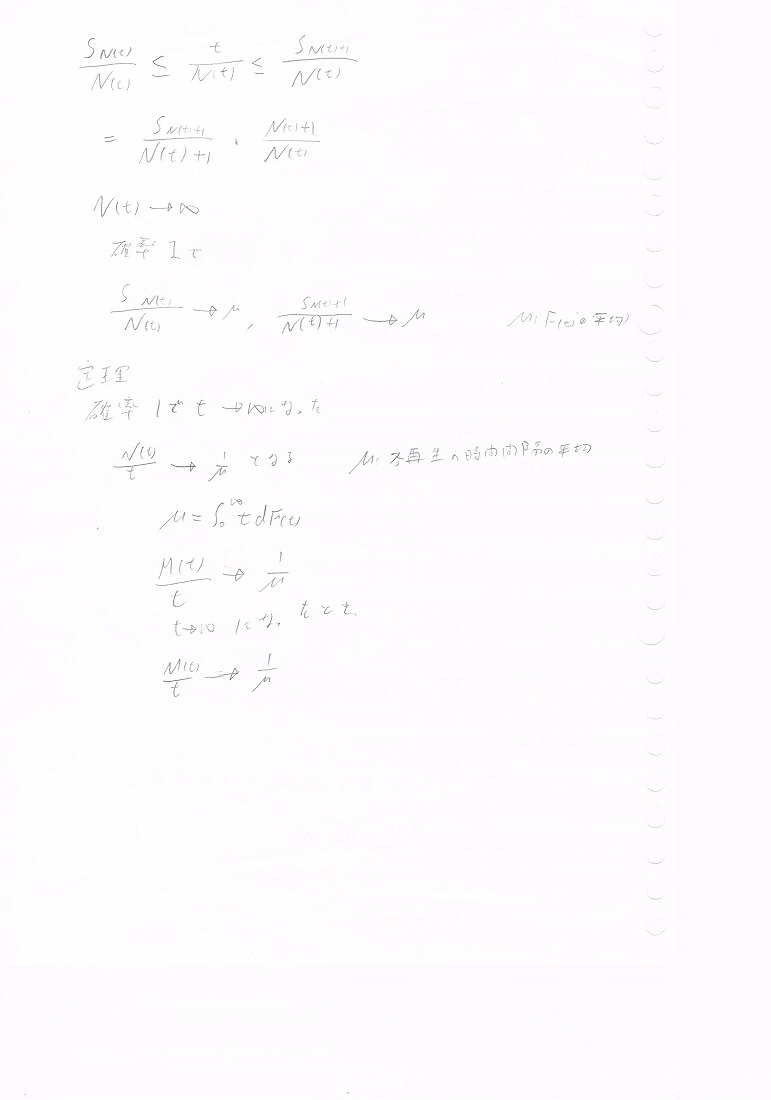 S_{N(t)}/N(t) ≤ t/N(t) ≤ S_{N(t)+1}/N(t)
= S_{N(t)+1}/N(t)+1 · N(t)+1/N(t)
N(t) → ∞
確率1で
S_{N(t)}/N(t) → μ, S_{N(t)+1}/N(t)+1 → μ μ: F(t)の平均
定理
確率1でt→∞になった
N(t)/t → 1/μ となる μ: 各再生の時間間隔の平均
μ = ∫₀^∞ t dF(t)
M(t)/t → 1/μ
t→∞になったとき
M(t)/t → 1/μ